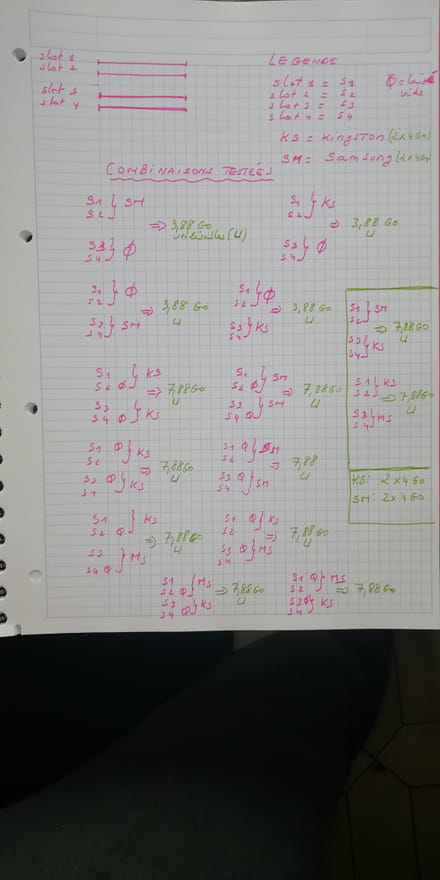 Slot 1
Slot 2
Slot 3
Slot 4
LEGENDE
Slot 1 = S1
Slot 2 = S2
Slot 3 = S3
Slot 4 = S4
Ø = laissé
vide
KS = Kingston (2x4Go)
SM = Samsung (2x4Go)
COMBINAISONS TESTÉES
S1 } SM
S2
=> 3,88 Go
utilisables (U)
S3 } Ø
S4
S1 } KS
S2
=> 3,88 Go
U
S3 } Ø
S4
S1 } Ø
S2
=> 3,88 Go
U
S3 } SM
S4
S1 } Ø
S2
=> 3,88 Go
U
S3 } KS
S4
S1 } SM
S2
=> 7,88 Go
U
S3 } KS
S4
S1 } KS
S2
=> 7,88 Go
U
S3 } MS
S4
KS: 2x4Go
SM: 2x4Go
S1 } KS
S2 Ø
=> 7,88 Go
U
S3 } KS
S4 Ø
S1 } SM
S2 Ø
=> 7,88 Go
U
S3 } SM
S4 Ø
S1 Ø } KS
S2
=> 7,88 Go
U
S3 Ø } KS
S4
S1 Ø } SM
S2
=> 7,88
U
S3 Ø } SM
S4
S1 } KS
S2 Ø
=> 7,88 Go
U
S3 } MS
S4 Ø
S1 Ø } KS
S2
=> 7,88 Go
U
S3 Ø } MS
S4
S1 } MS
S2 Ø
=> 7,88 Go
U
S3 } KS
S4 Ø
S1 Ø } MS
S2
=> 7,88 Go
S3 Ø } KS
S4